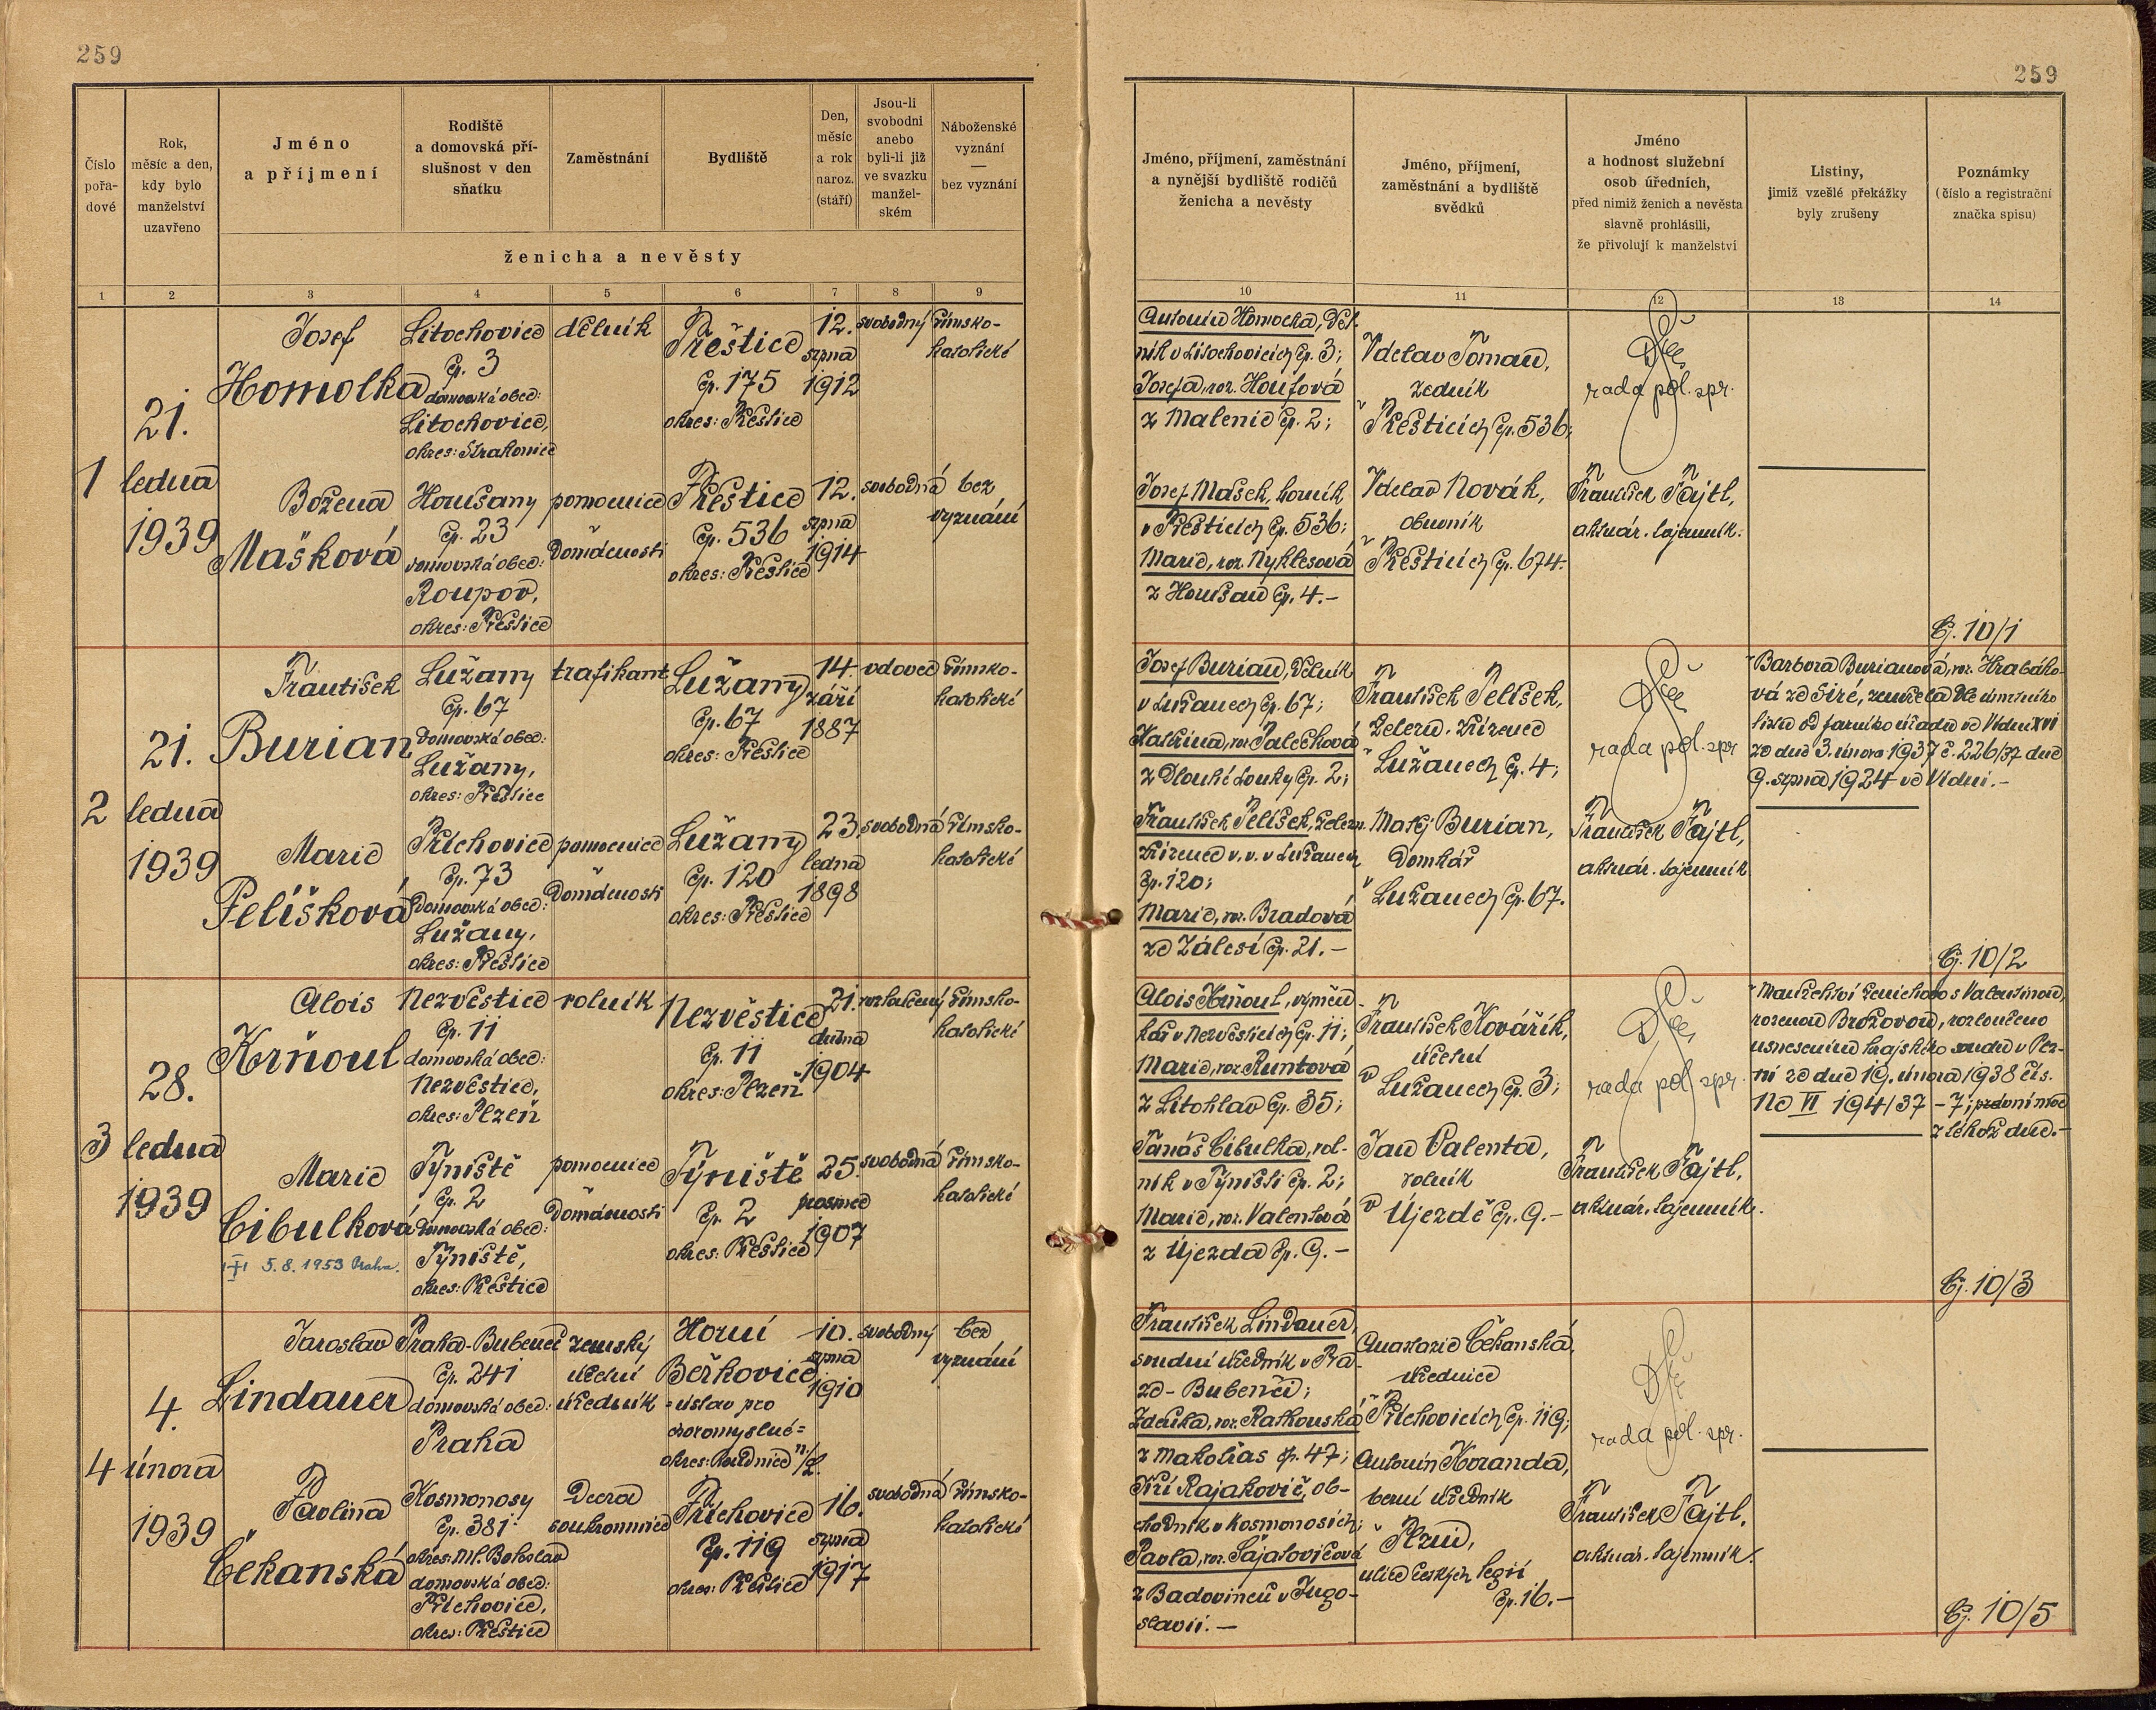 259
259
Číslo pořa- dové
Rok, měsíc a den, kdy bylo manželství uzavřeno
Jméno a příjmení
Rodiště a domovská pří- slušnost v den sňatku
Zaměstnání
Bydliště
Den, měsíc a rok naroz. (stáří)
Jsou-li svobodni anebo byli-li již ve svazku manžel- ském
Náboženské vyznání — bez vyznání
ženicha a nevěsty
Jméno, příjmení, zaměstnání a nynější bydliště rodičů ženicha a nevěsty
Jméno, příjmení, zaměstnání a bydliště svědků
Jméno a hodnost služební osob úředních, před nimiž ženich a nevěsta slavně prohlásili, že přivolují k manželství
Listiny, jimiž vzešlé překážky byly zrušeny
Poznámky (číslo a registrační značka spisu)
1 2 3 4 5 6 7 8 9
10 11 12 13 14
1
21.
ledna
1939
Josef
Homolka
Litochovice
čp. 3
domovská obec:
Litochovice,
okres: Strakonice
dělník
Přeštice
čp. 175
okres: Přeštice
12.
srpna
1912
svobodný
římsko-
katolické
Božena
Mašková
Houšany
čp. 23
domovská obec:
Roupov,
okres: Přeštice
pomocnice
v domácnosti
Přeštice
čp. 536
okres: Přeštice
12.
srpna
1914
svobodná
bez
vyznání
Antonín Homolka, děl-
ník v Litochovicích čp. 3;
Josefa, roz. Houfová
z Malenic čp. 2;
Josef Mašek, horník
v Přešticích čp. 536;
Marie, roz. Nyklesová
z Houšan čp. 4.-
Václav Toman,
zedník
v Přešticích čp. 536;
Václav Novák,
obuvník
v Přešticích čp. 674.
rada pol. spr.
František Fajtl,
aktuár. tajemník.
Čj. 10/1
2
21.
ledna
1939
František
Burian
Lužany
čp. 67
domovská obec:
Lužany,
okres: Přeštice
trafikant
Lužany
čp. 67
okres: Přeštice
14.
září
1887
vdovec
římsko-
katolické
Marie
Pelíšková
Příchovice
čp. 73
domovská obec:
Lužany,
okres: Přeštice
pomocnice
v domácnosti
Lužany
čp. 120
okres: Přeštice
23.
ledna
1898
svobodná
římsko-
katolické
Josef Burian, dělník
v Lužanech čp. 67;
Kateřina, roz. Palečková
z Dlouhé Louky čp. 2;
František Pelíšek, želez.
zřízenec v. v. v Lužanech
čp. 120;
Marie, roz. Bradová
ze Zálesí čp. 21.-
František Pelíšek,
železn. zřízenec
v Lužanech čp. 4;
Matěj Burian,
domkář
v Lužanech čp. 67.
rada pol. spr.
František Fajtl,
aktuár. tajemník
Barbora Burianová, roz. Hrabáko-
vá ze Siré, zemřela dle úmrtního
listu od farního úřadu ve Vídni XVI
ze dne 3. února 1937 č. 226/37 dne
9. srpna 1924 ve Vídni.-
Čj. 10/2
3
28.
ledna
1939
Alois
Krňoul
Nezvěstice
čp. 11
domovská obec:
Nezvěstice,
okres: Plzeň
rolník
Nezvěstice
čp. 11
okres: Plzeň
21.
dubna
1904
rozloučený
římsko-
katolické
Marie
Cibulková
5.8.1953 Praha.
Týniště
čp. 2
domovská obec:
Týniště,
okres: Přeštice
pomocnice
v domácnosti
Týniště
čp. 2
okres: Přeštice
25.
prosince
1907
svobodná
římsko-
katolické
Alois Krňoul, výměn-
kář v Nezvěsticích čp. 11;
Marie, roz. Runtová
z Litohlav čp. 35;
Tomáš Cibulka, rol-
ník v Týništi čp. 2;
Marie, roz. Valentová
z Újezda čp. 9.-
František Kovářík,
účetní
v Lužanech čp. 3;
Jan Valenta,
rolník
v Újezdě čp. 9.-
rada pol. spr.
František Fajtl,
aktuár. tajemník.
Manželství ženichovo s Valentinou,
rozenou Brožovou, rozloučeno
usnesením krajského soudu v Plz-
ni ze dne 19. února 1938 čís.
Nc VI 194/37 - 7; právní moc
z téhož dne.-
Čj. 10/3
4
4.
února
1939
Jaroslav
Lindauer
Praha-Bubeneč
čp. 241
domovská obec:
Praha
zemský
účetní
úředník
Horní
Beřkovice
= ústav pro
choromyslné =
okres: Roudnice n/L.
10.
srpna
1910
svobodný
bez
vyznání
Pavlina
Čekanská
Kosmonosy
čp. 381
okres: Ml. Boleslav
domovská obec:
Příchovice,
okres: Přeštice
Dcera
soukromnice
Příchovice
čp. 119
okres: Přeštice
16.
srpna
1917
svobodná
římsko-
katolické
František Lindauer,
soudní úředník v Pra-
ze - Bubenči;
Zdeňka, roz. Ratkouská
z Makotřas čp. 47;
Jiří Rajakovič, ob-
chodník v Kosmonosích;
Pavla, roz. Šajatovičová
z Badovinců v Jugo-
slavii.-
Anastazie Čekanská,
úřednice
v Příchovicích čp. 119;
Antonín Koranda,
berní úředník
v Plzni,
ulice českých legií
čp. 16.-
rada pol. spr.
František Fajtl,
aktuár. tajemník.
Čj. 10/5